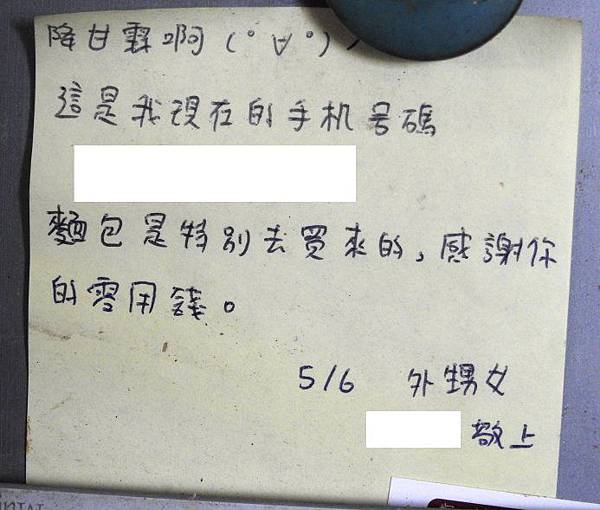 降甘霖啊 (°∀°)ﾉ
這是我現在的手机号碼
麵包是特別去買來的,感謝你
的零用錢。
5/6 外甥女
敬上